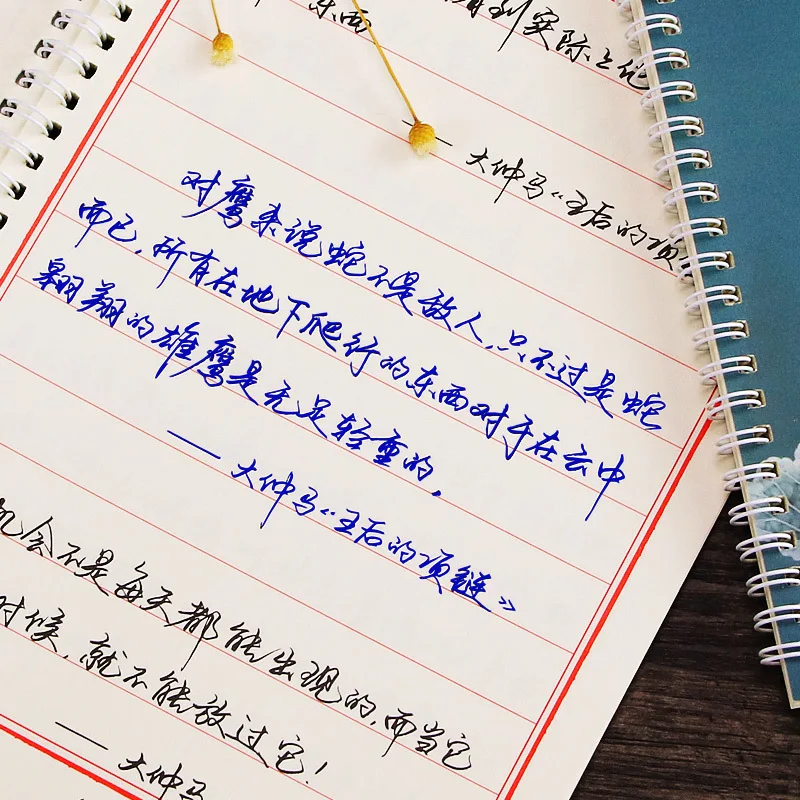 东西
有到实际上他
—— 大仲马《王后的项
对鹰来说蛇不是敌人，只不过是蛇
而已，所有在地下爬行的东西对于在云中
翱翔的雄鹰是无足轻重的。
—— 大仲马《王后的项链》
机会不是每天都能出现的，而当它
时候，就不能放过它！
—— 大仲马